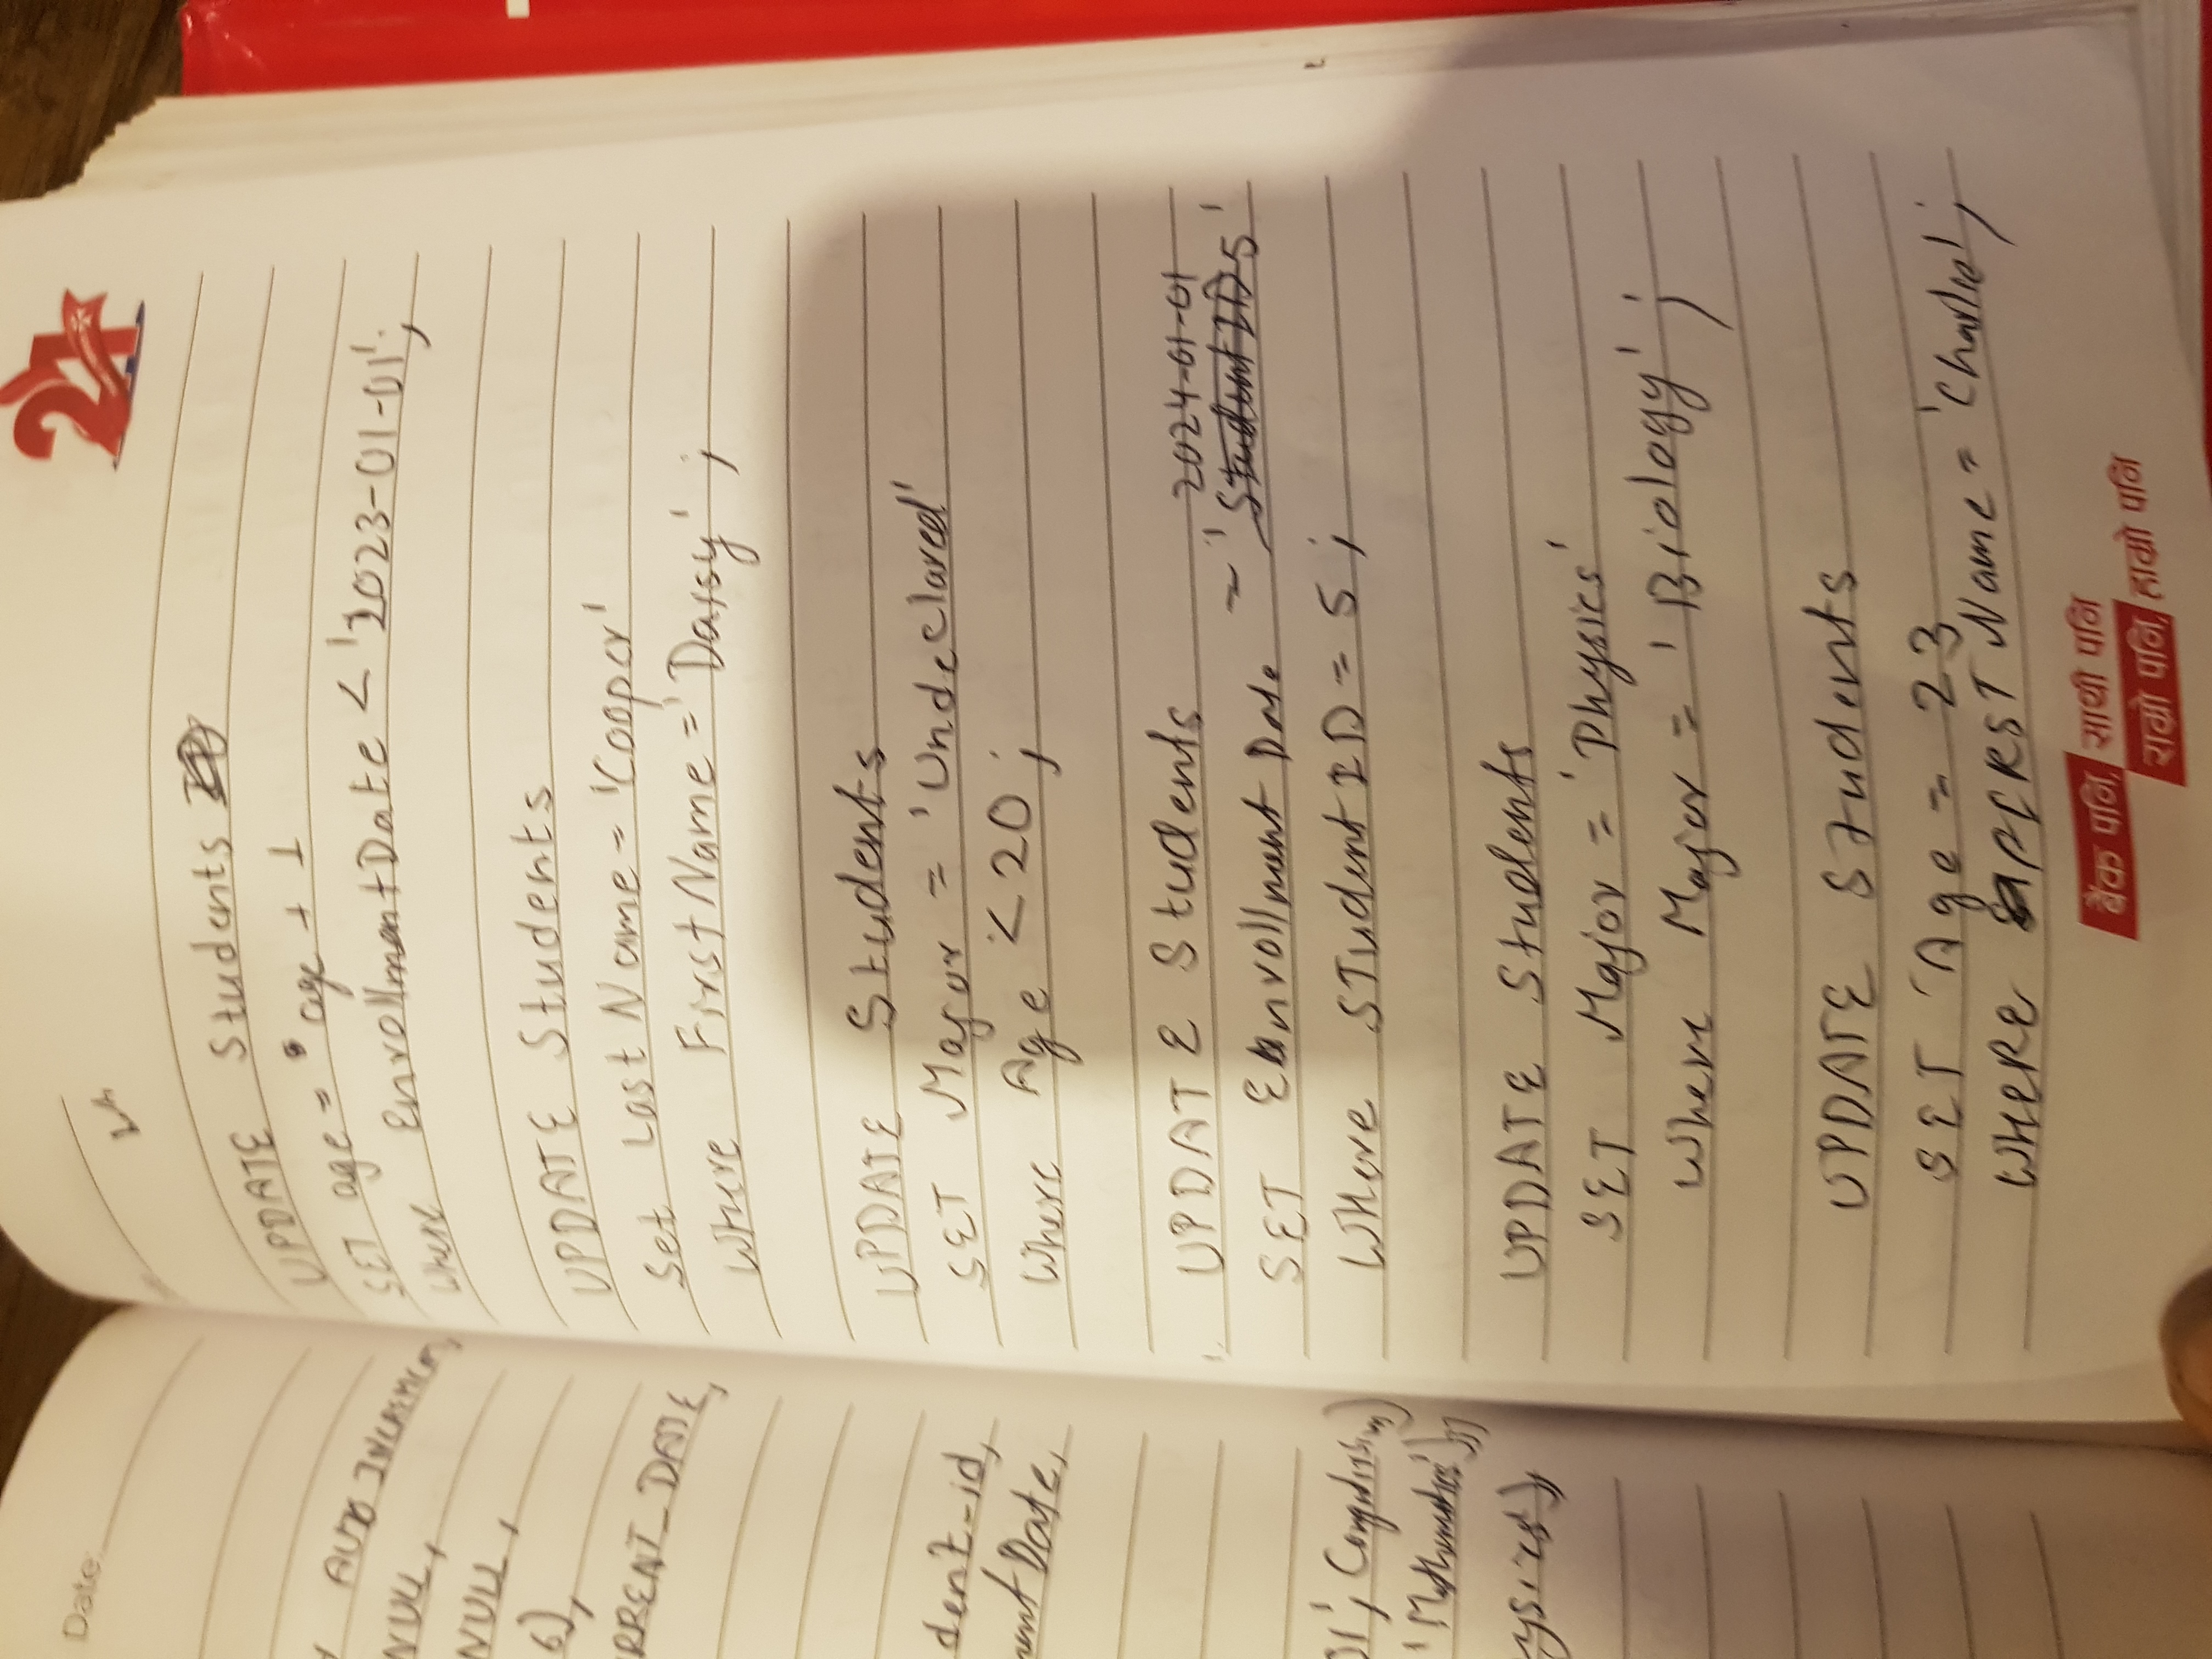 Date:
Y AUTO INCREMENT,
NULL,
NULL,
6),
RRENT_DATE,
dent-id,
mentDate,
01',
'Mathematics'),
ysics),
21
UPDATE Students
SET age = age + 1
Where EnrollmentDate < '2023-01-01';
UPDATE Students
Set LastName = 'Cooper'
Where FirstName = 'Daisy' ;
UPDATE Students
SET Major = 'Undeclared'
Where Age < 20 ;
UPDATE Students
2024-01-01
SET Enrollment Date = ' StudentID 5 '
Where STudentID = 5 ;
UPDATE Students
SET Major = 'Physics'
Where Major = 'Biology' ;
UPDATE Students
SET Age = 23
WHERE FIRST Name = 'Charlie' ;
बैंक पनि, साथी पनि
राम्रो पनि, हाम्रो पनि